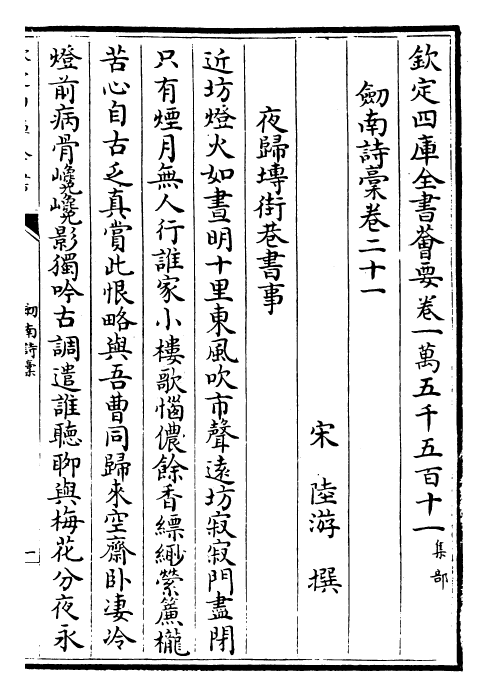 欽定四庫全書薈要卷一萬五千五百十一 集部
劒南詩稾卷二十一
宋 陸游 撰
夜歸塼街巷書事
近坊燈火如晝明十里東風吹市聲遠坊寂寂門盡閉
只有煙月無人行誰家小樓歌惱儂餘香縹緲縈簾櫳
苦心自古乏真賞此恨略與吾曹同歸來空齋卧凄冷
燈前病骨巉巉影獨吟古調遣誰聽聊與梅花分夜永
劒南詩稾
一